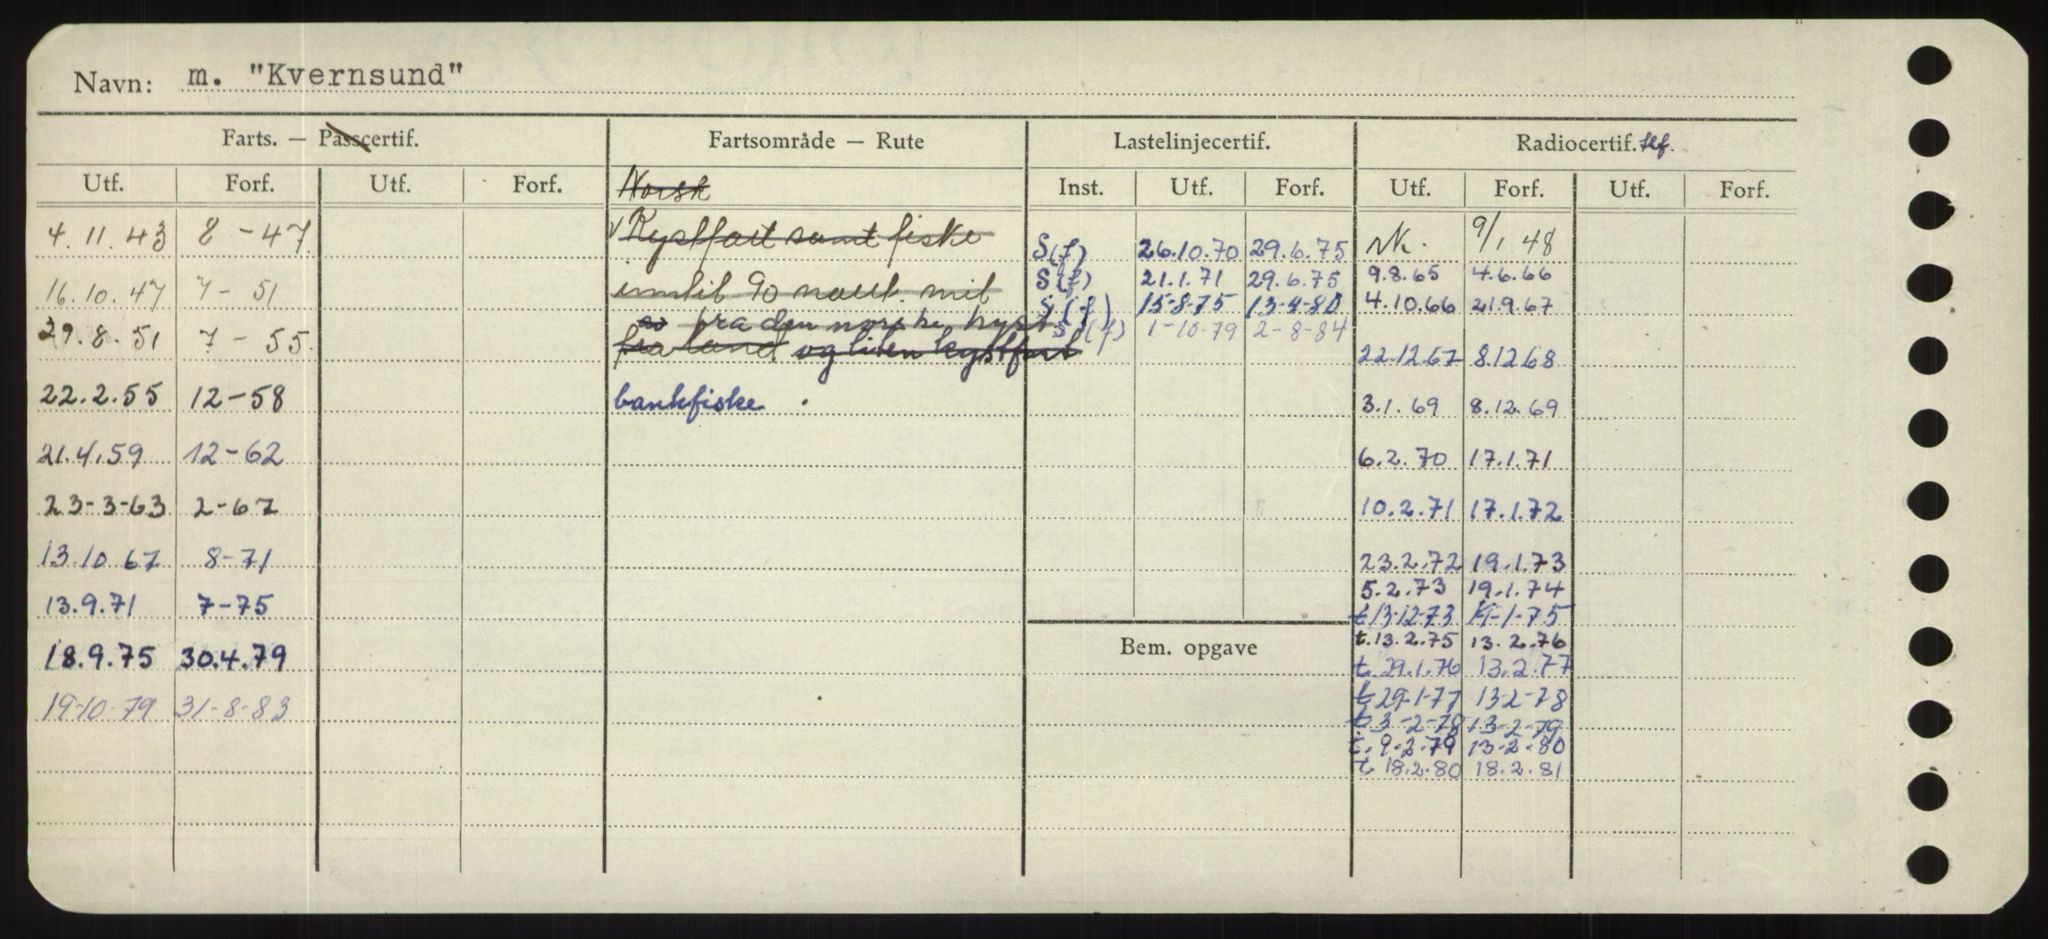 Navn: m. "Kvernsund"
Farts. — Passcertif. Fartsområde — Rute Lastelinjecertif. Radiocertif. tlf.
Utf. Forf. Utf. Forf. Norsk Inst. Utf. Forf. Utf. Forf. Utf. Forf.
4.11.43 8-47 Kystfart samt fiske S(f) 26.10.70 29.6.75 Nk. 9/1 48
S(f) 21.1.71 29.6.75 9.8.65 4.6.66
16.10.47 7-51 inntil 90 naut. mil S(f) 15-8-75 13-4-80 4.10.66 21.9.67
29.8.51 7-55 fra den norske kyst S(f) 1-10-79 2-8-84
fra land og liten kystfart 22.12.67 8.12.68
22.2.55 12-58 bankfiske 3.1.69 8.12.69
21.4.59 12-62 6.2.70 17.1.71
23-3-63 2-67 10.2.71 17.1.72
13.10.67 8-71 23.2.72 19.1.73
13.9.71 7-75 5.2.73 19.1.74
t 13-12-73 19-1-75
Bem. opgave
18.9.75 30.4.79 t. 13.2.75 13.2.76
t. 29.1.76 13.2.77
19-10-79 31-8-83 t 29-1-77 13-2-78
t 3-2-78 13-2-79
t. 9-2-79 13-2-80
t 18.2.80 18.2.81